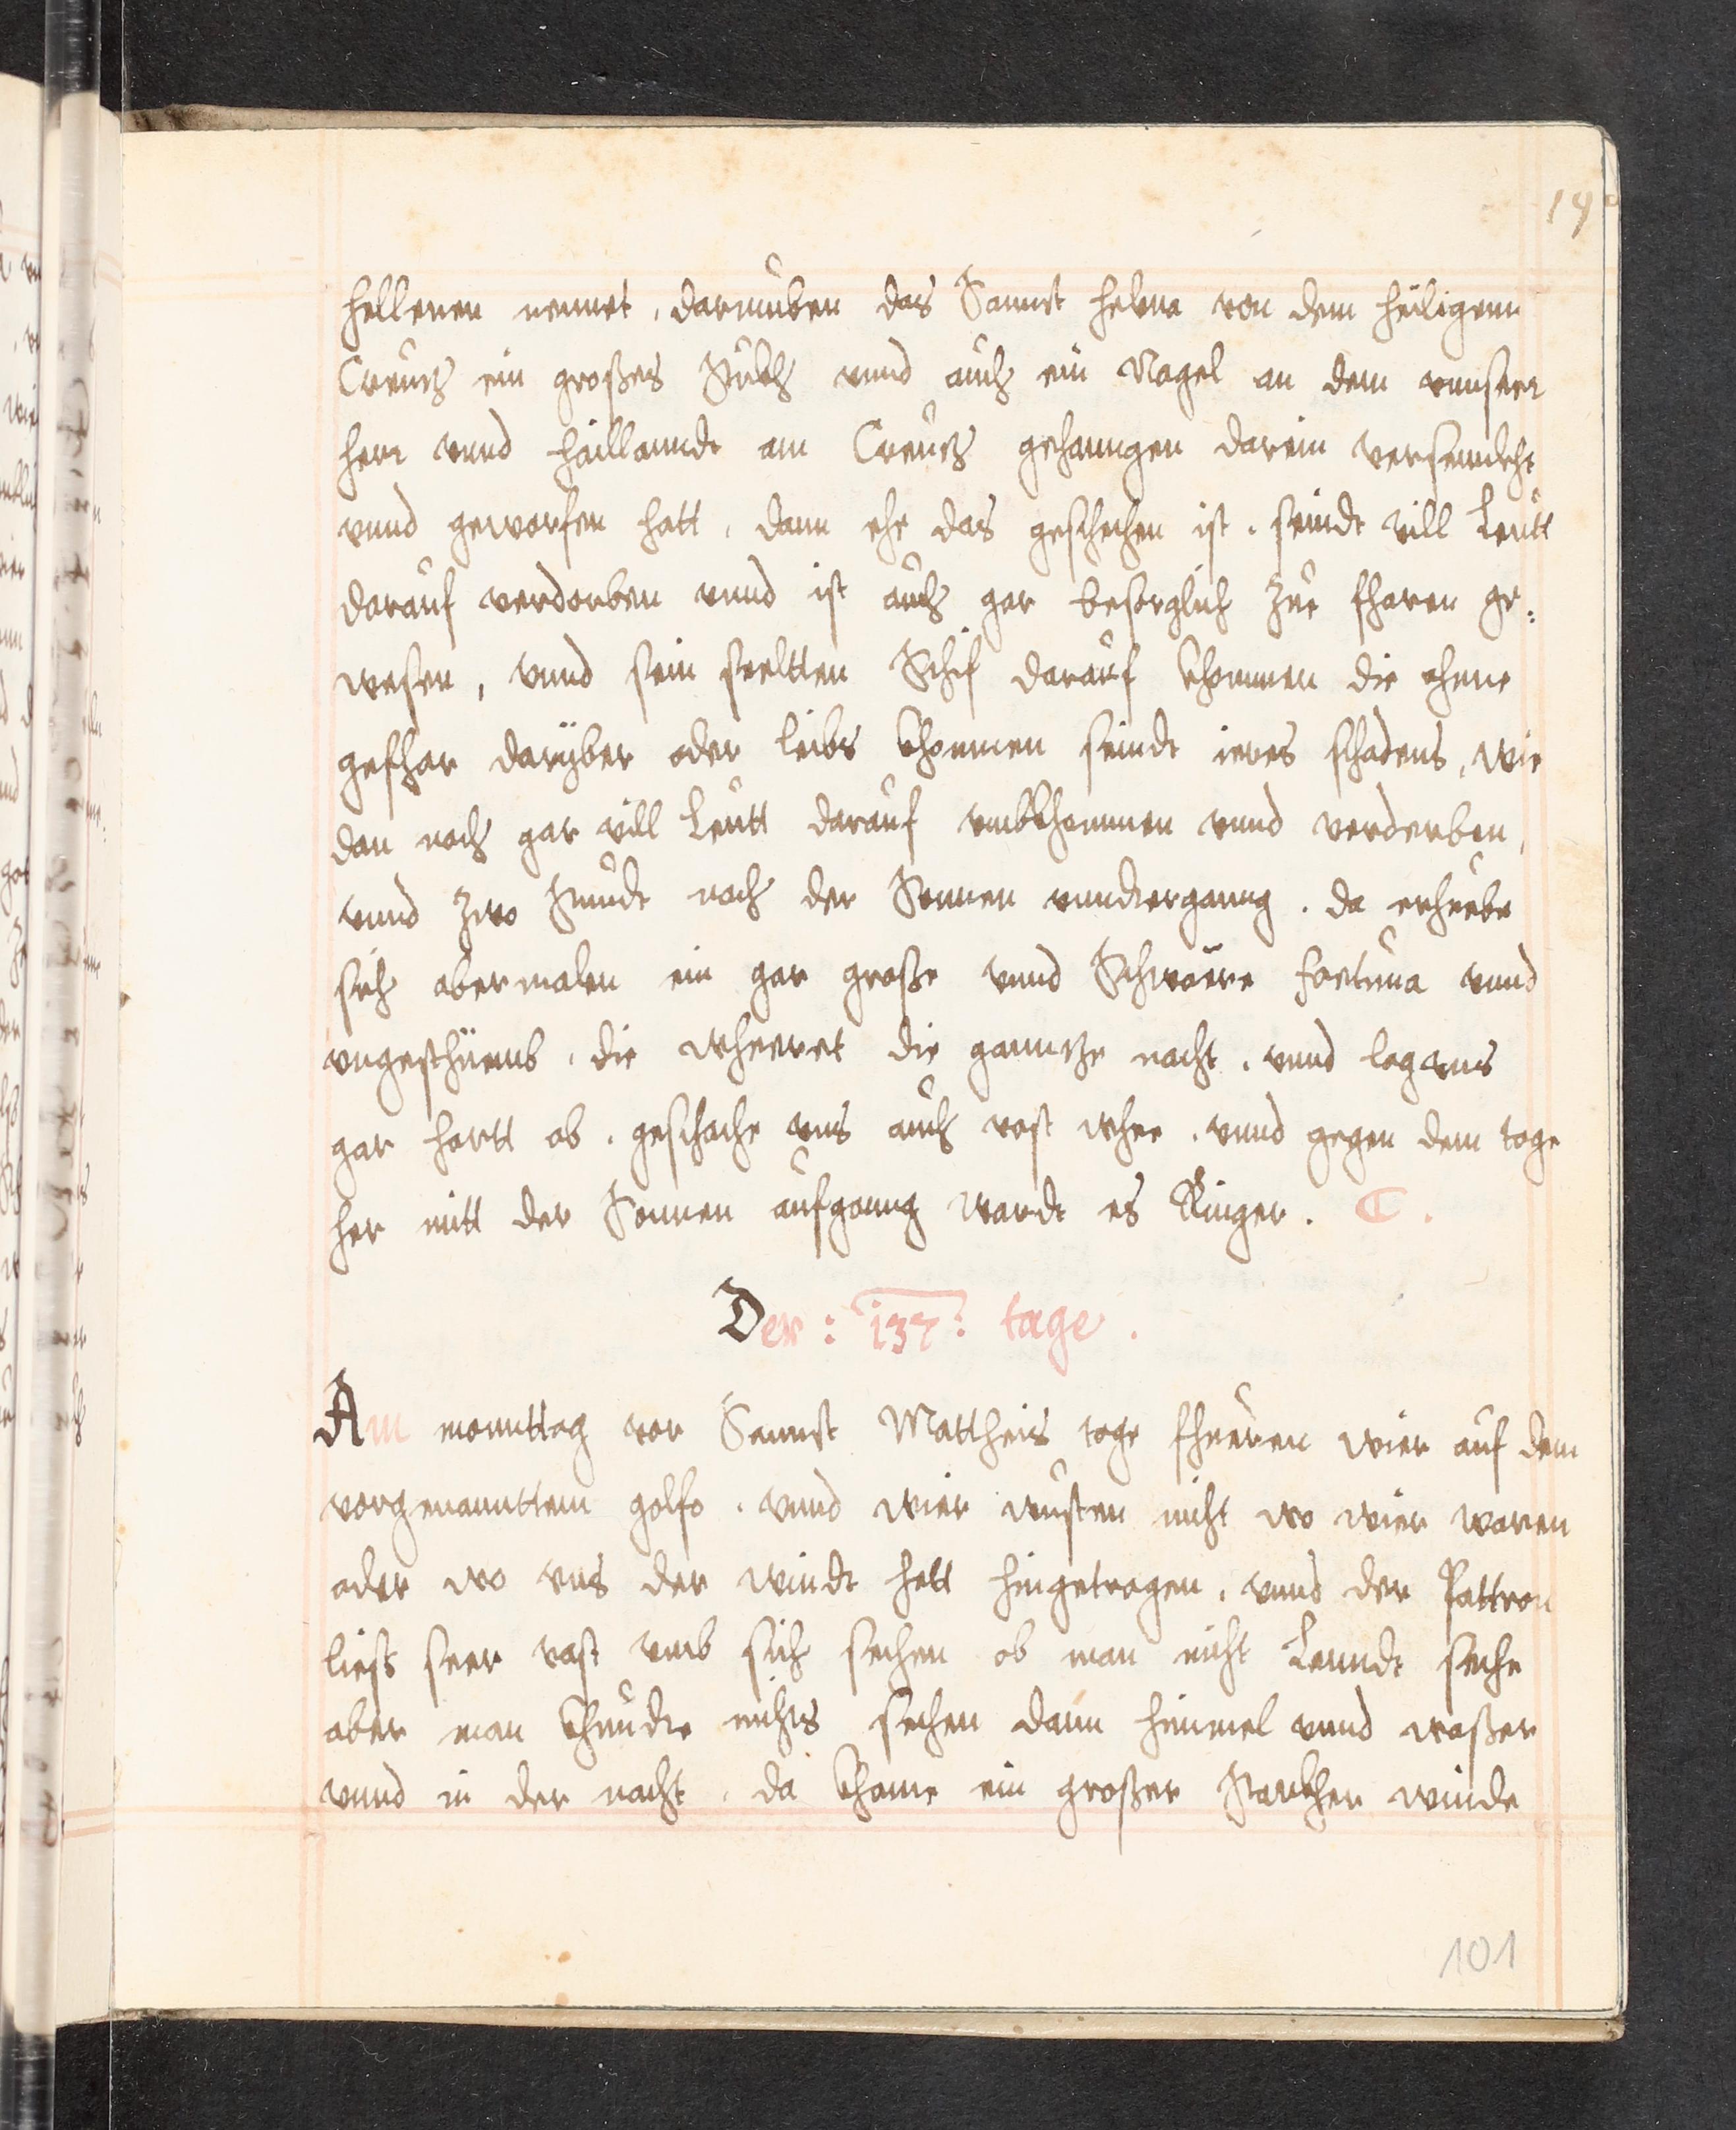 19
hellenen nennet, darumben das Sannct helena von dem heiligenn
Creutz ein großes Stukh vnnd auch ein Nagel an dem vnnserr
herr vnnd haillanndt am Creutz gehanngen darein versennckht
vnnd geworfen hatt, dann ehe das geschehen ist, seindt vill Leutt
darauf verdorben vnnd ist auch gar besorglich zue fharen ge:
wesen, vnnd sein seeltten Schif darauf khommen die ohnne
gefhar daryber oder leibs khommen seindt ires schadens, wie
dan noch gar vill Leutt darauf vmbkhommen vnnd verderben,
vnnd zwo Stundt nach der Sonnen vnndterganng. da erhuebe
sich abermalen ein gar große vnnd Schwäre fortuna vnnd
vngesthüemb, die wheeret die ganntze nacht, vnnd lag vns
gar hartt ob, geschache vns auch vast whee, vnnd gegen dem tage
her mitt der Sonnen aufganng wardt es Ringer. C.
Der: 137: tage.
Am monnttag vor Sannct Mattheis tage fhueren wier auf dem
vorgenannttem golfo. vnnd wier wusten nicht wo wier waren
oder wo vns der windt hett hingetragen, vnnd der Pattron
ließ seer vast vmb sich sechen ob man nicht Lenndt seche
aber man khundte nichts sechen dann himmel vnnd waßer
vnnd in der nacht, da khame ein großer Starkher winde
101